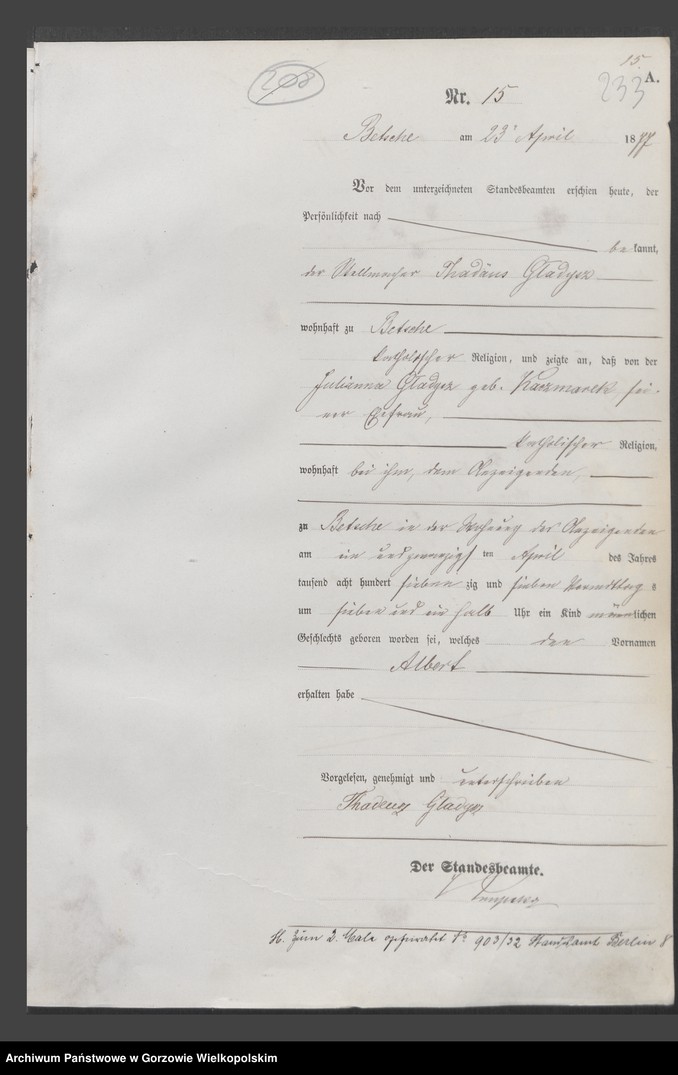 15.
A.
208
233
Nr. 15
Betsche am 23ᵗ April 1877
Vor dem unterzeichneten Standesbeamten erschien heute, der
Persönlichkeit nach
be kannt,
der Stellmacher Thadäus Gladysz
wohnhaft zu Betsche
katholischer Religion, und zeigte an, daß von der
Julianna Gladysz geb. Kaczmarek, sei-
ner Ehefrau,
katholischer Religion,
wohnhaft bei ihm, dem Anzeigenden,
zu Betsche in der Wohnung des Anzeigenden
am ein und zwanzigsten April des Jahres
tausend acht hundert sieben zig und sieben Vormittags
um sieben und ein halb Uhr ein Kind männlichen
Geschlechts geboren worden sei, welches den Vornamen
Albert
erhalten habe
Vorgelesen, genehmigt und unterschrieben
Thadeusz Gladysz
Der Standesbeamte.
H. Zum 2. Male geheiratet Nr 903/32 Standesamt Berlin 8
Archiwum Państwowe w Gorzowie Wielkopolskim